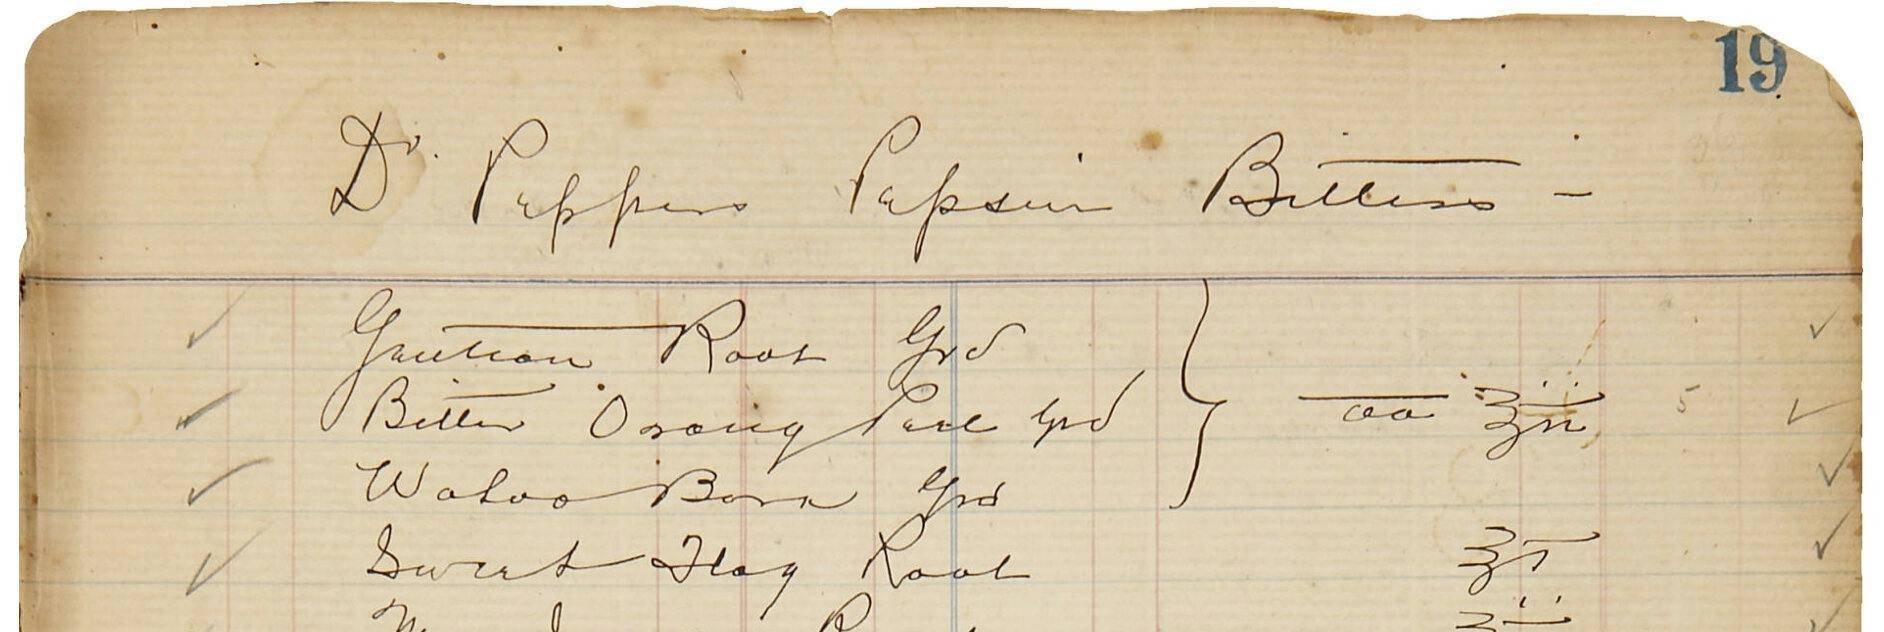 19
Dr. Peppers Pepsin Bitters –
Gentian Root Grd
Bitter Orang Peel Grd } aa ℥ii 5
Wahoo Bark Grd
Sweet Flag Root ℥i
℥ii